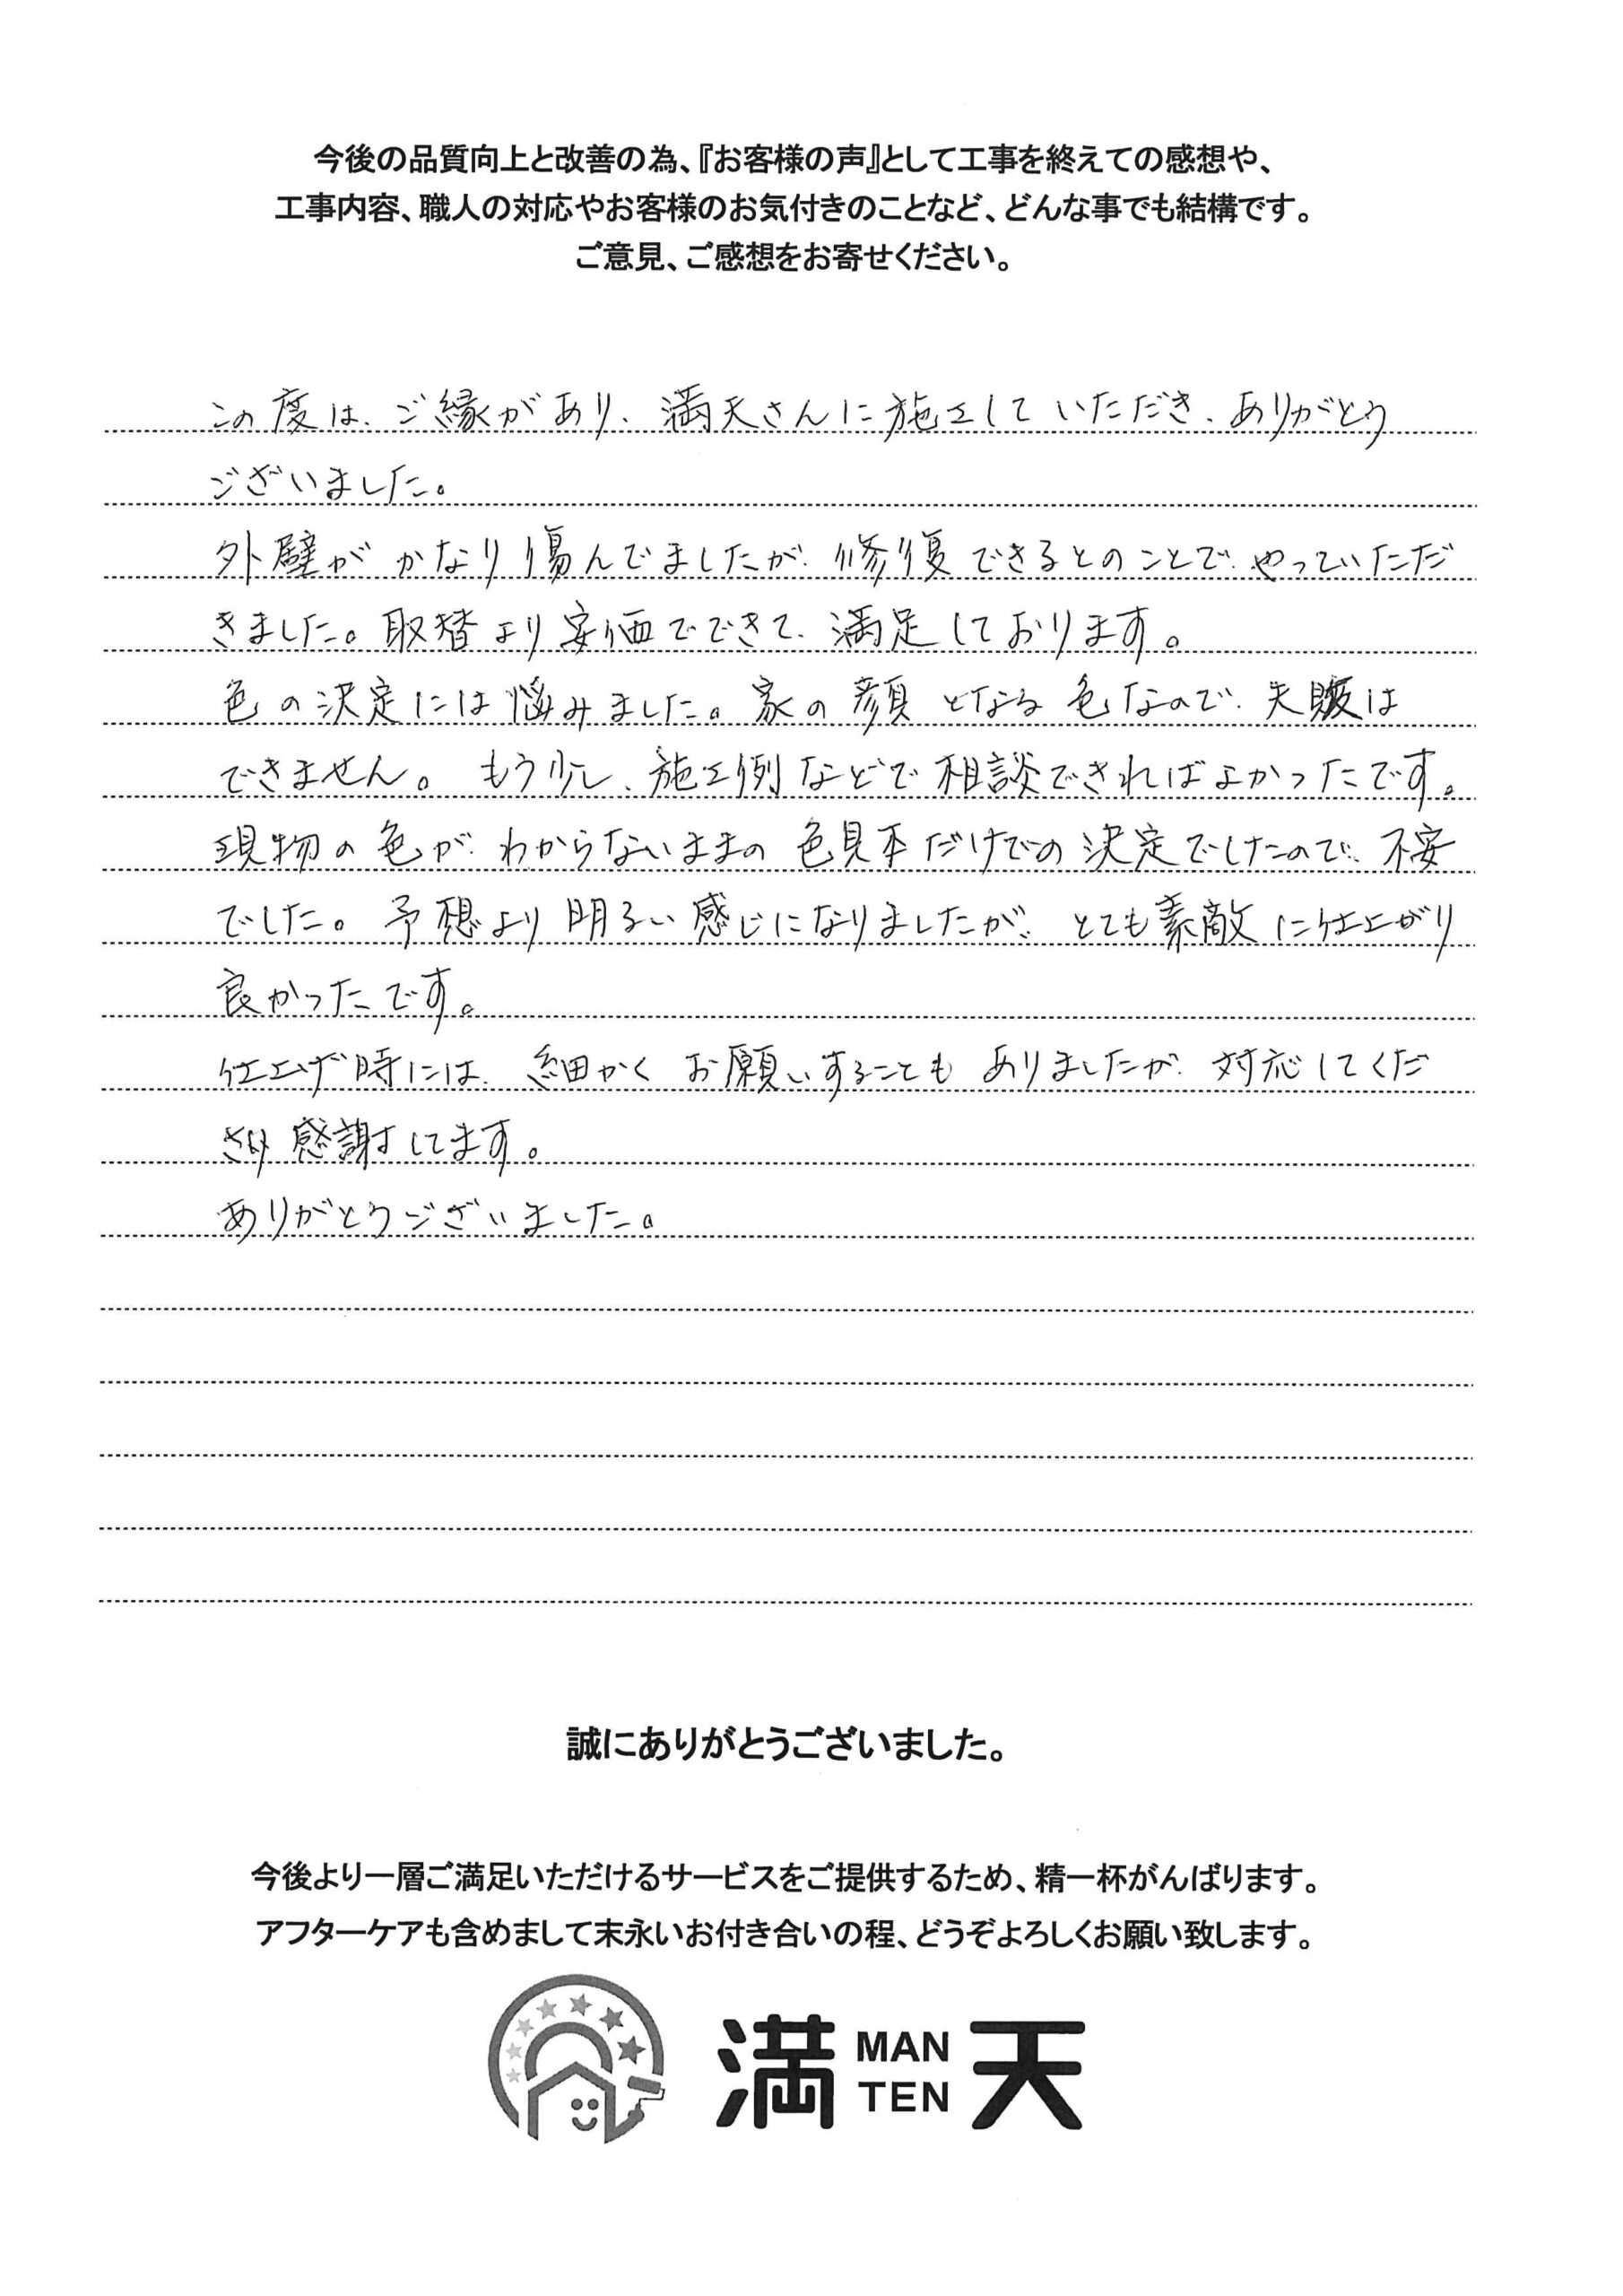 今後の品質向上と改善の為、『お客様の声』として工事を終えての感想や、
工事内容、職人の対応やお客様のお気付きのことなど、どんな事でも結構です。
ご意見、ご感想をお寄せください。
この度は、ご縁があり、満天さんに施工していただき、ありがとう
ございました。
外壁がかなり傷んでましたが、修復できるとのことで、やっていただ
きました。取替より安価でできて、満足しております。
色の決定には悩みました。家の顔となる色なので、失敗は
できません。もう少し、施工例などで相談できればよかったです。
現物の色が、わからないままの色見本だけでの決定でしたので、不安
でした。予想より明るい感じになりましたが、とても素敵に仕上がり
良かったです。
仕上げ時には、細かくお願いすることもありましたが、対応してくだ
さり感謝してます。
ありがとうございました。
誠にありがとうございました。
今後より一層ご満足いただけるサービスをご提供するため、精一杯がんばります。
アフターケアも含めまして末永いお付き合いの程、どうぞよろしくお願い致します。
満 MAN TEN 天